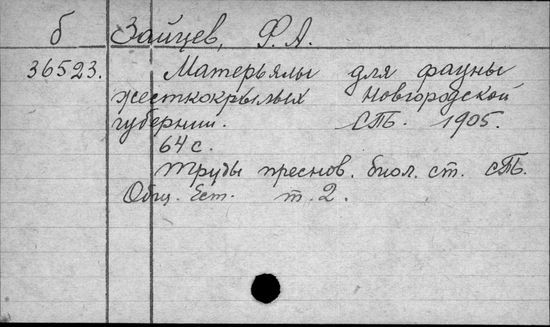 б Зайцев, Ф.А.
36523. Матерьялы для фауны
жесткокрылых Новгородской
губернии. СПБ. 1905.
64 с.
Труды преснов. биол. ст. СПБ.
Общ. Ест. т. 2.